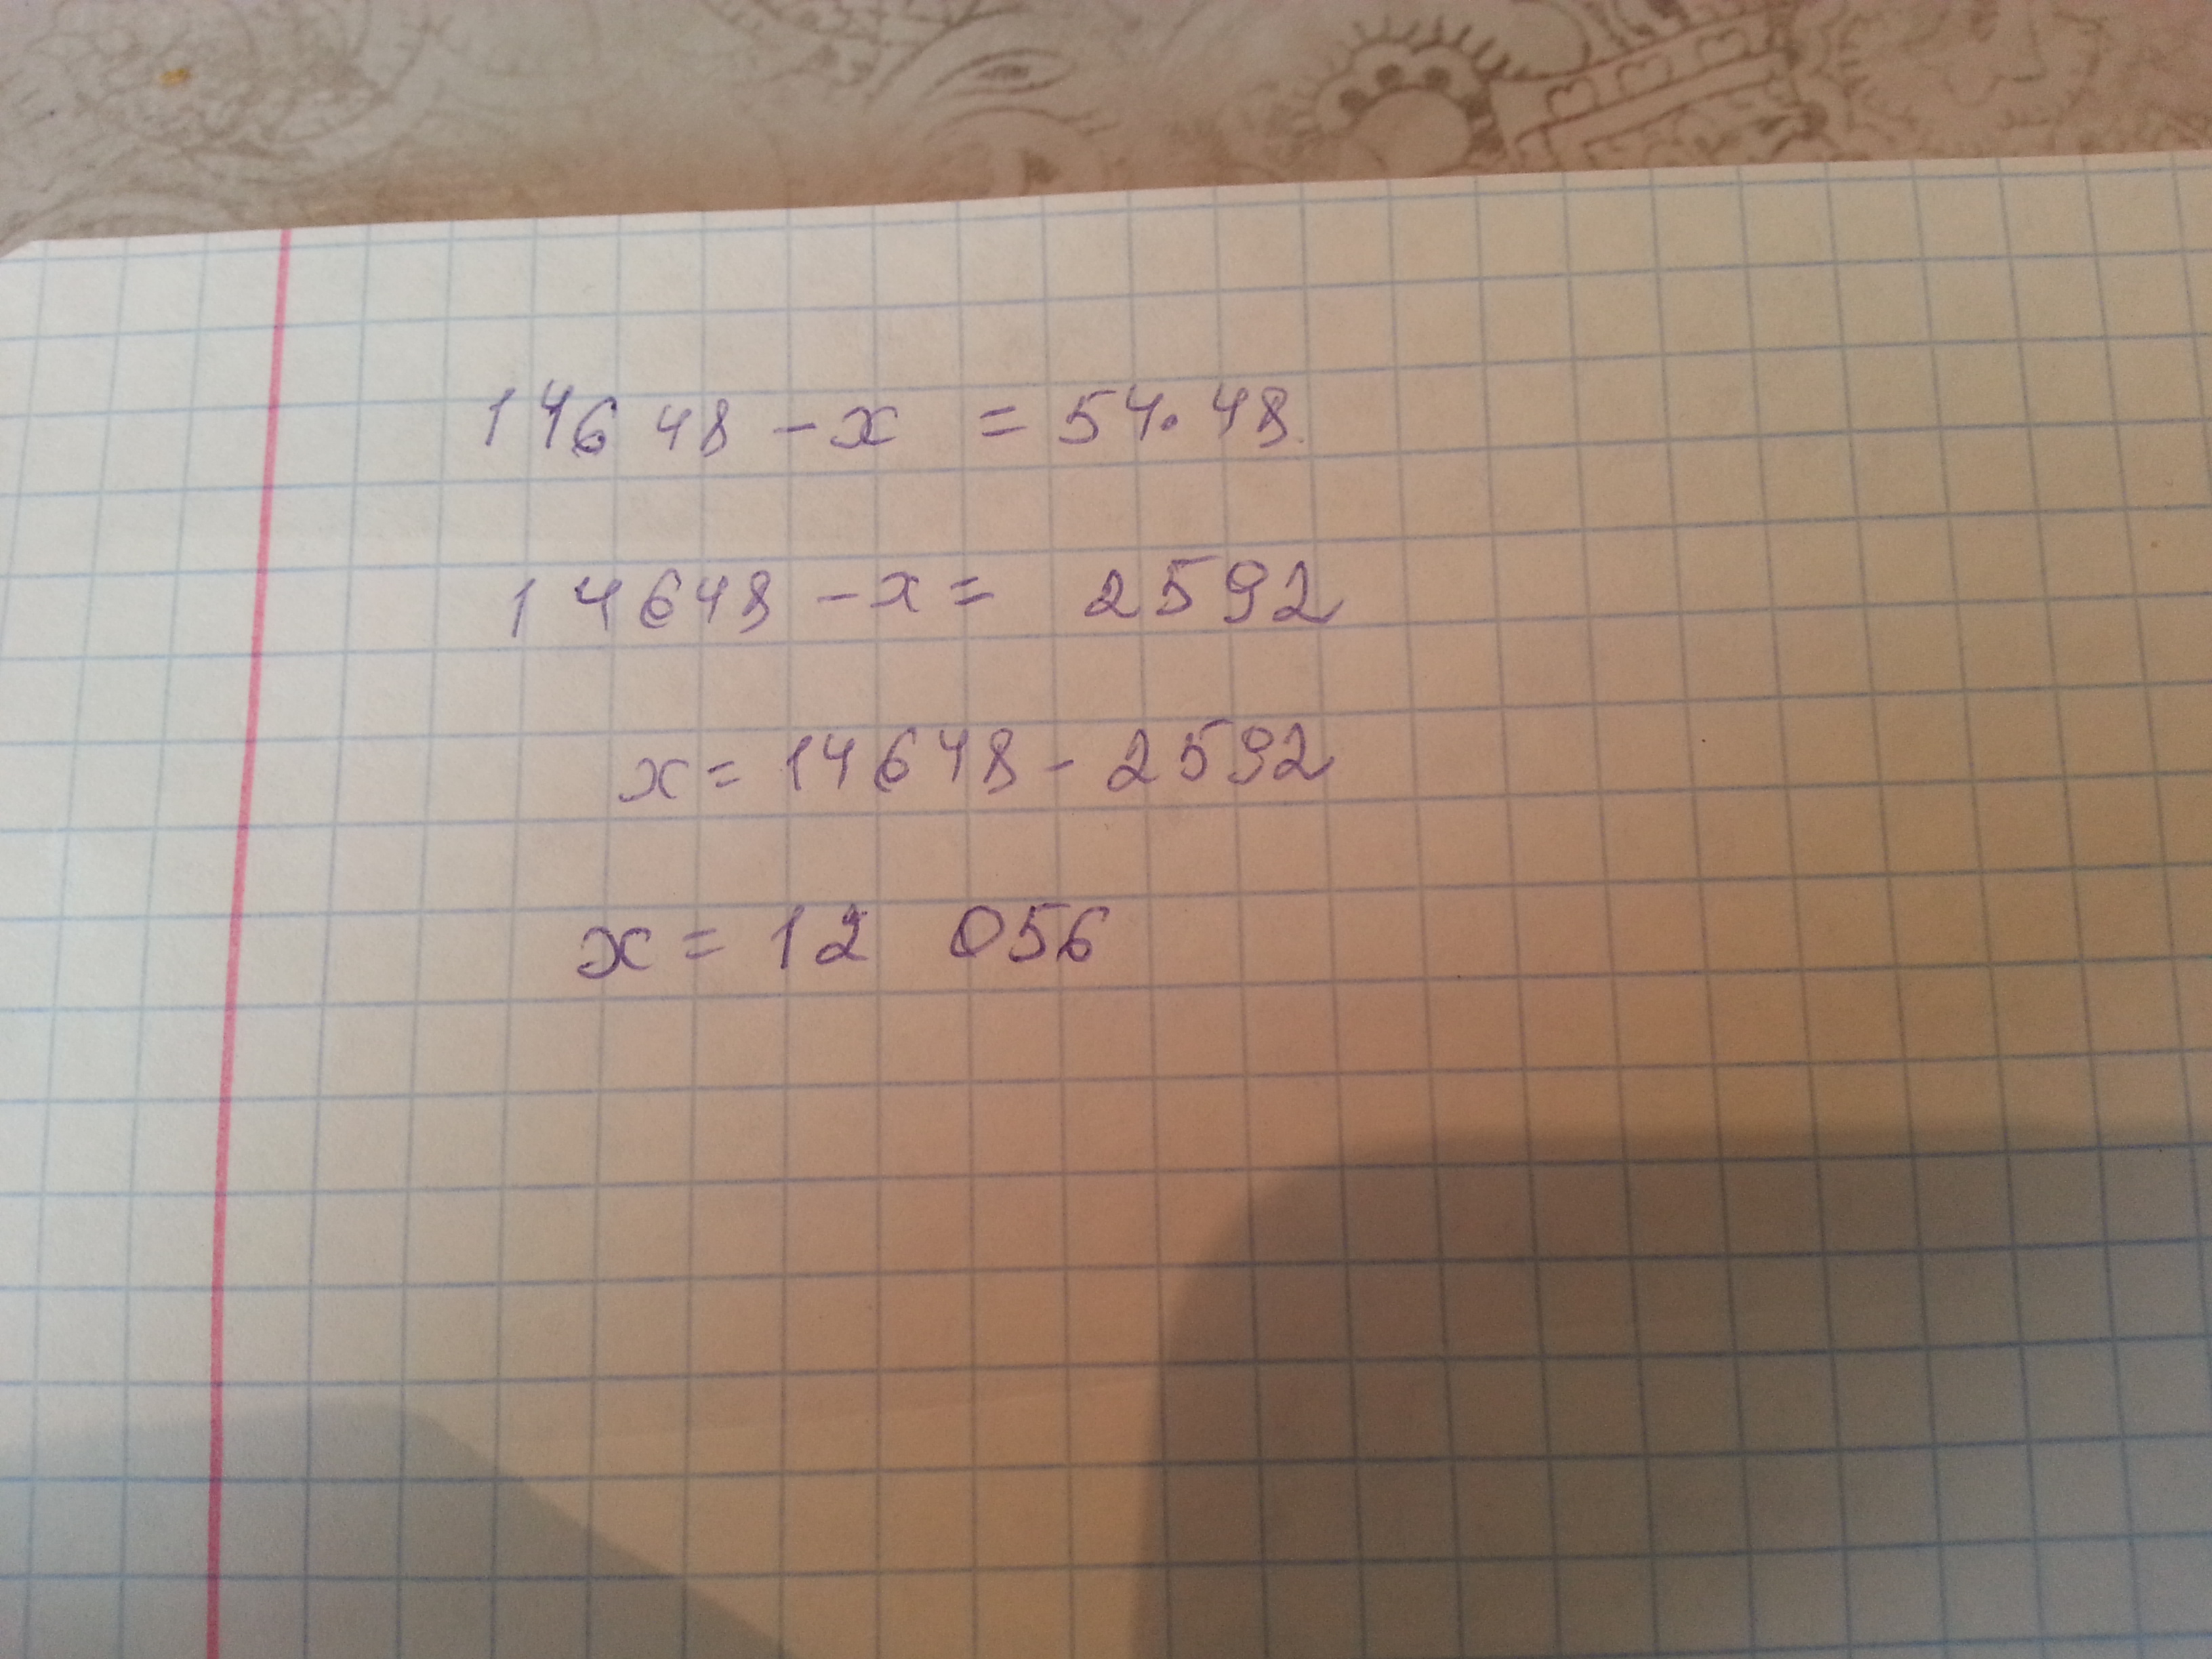 14648 - x = 54·48
14648 - x = 2592
x = 14648 - 2592
x = 12 056